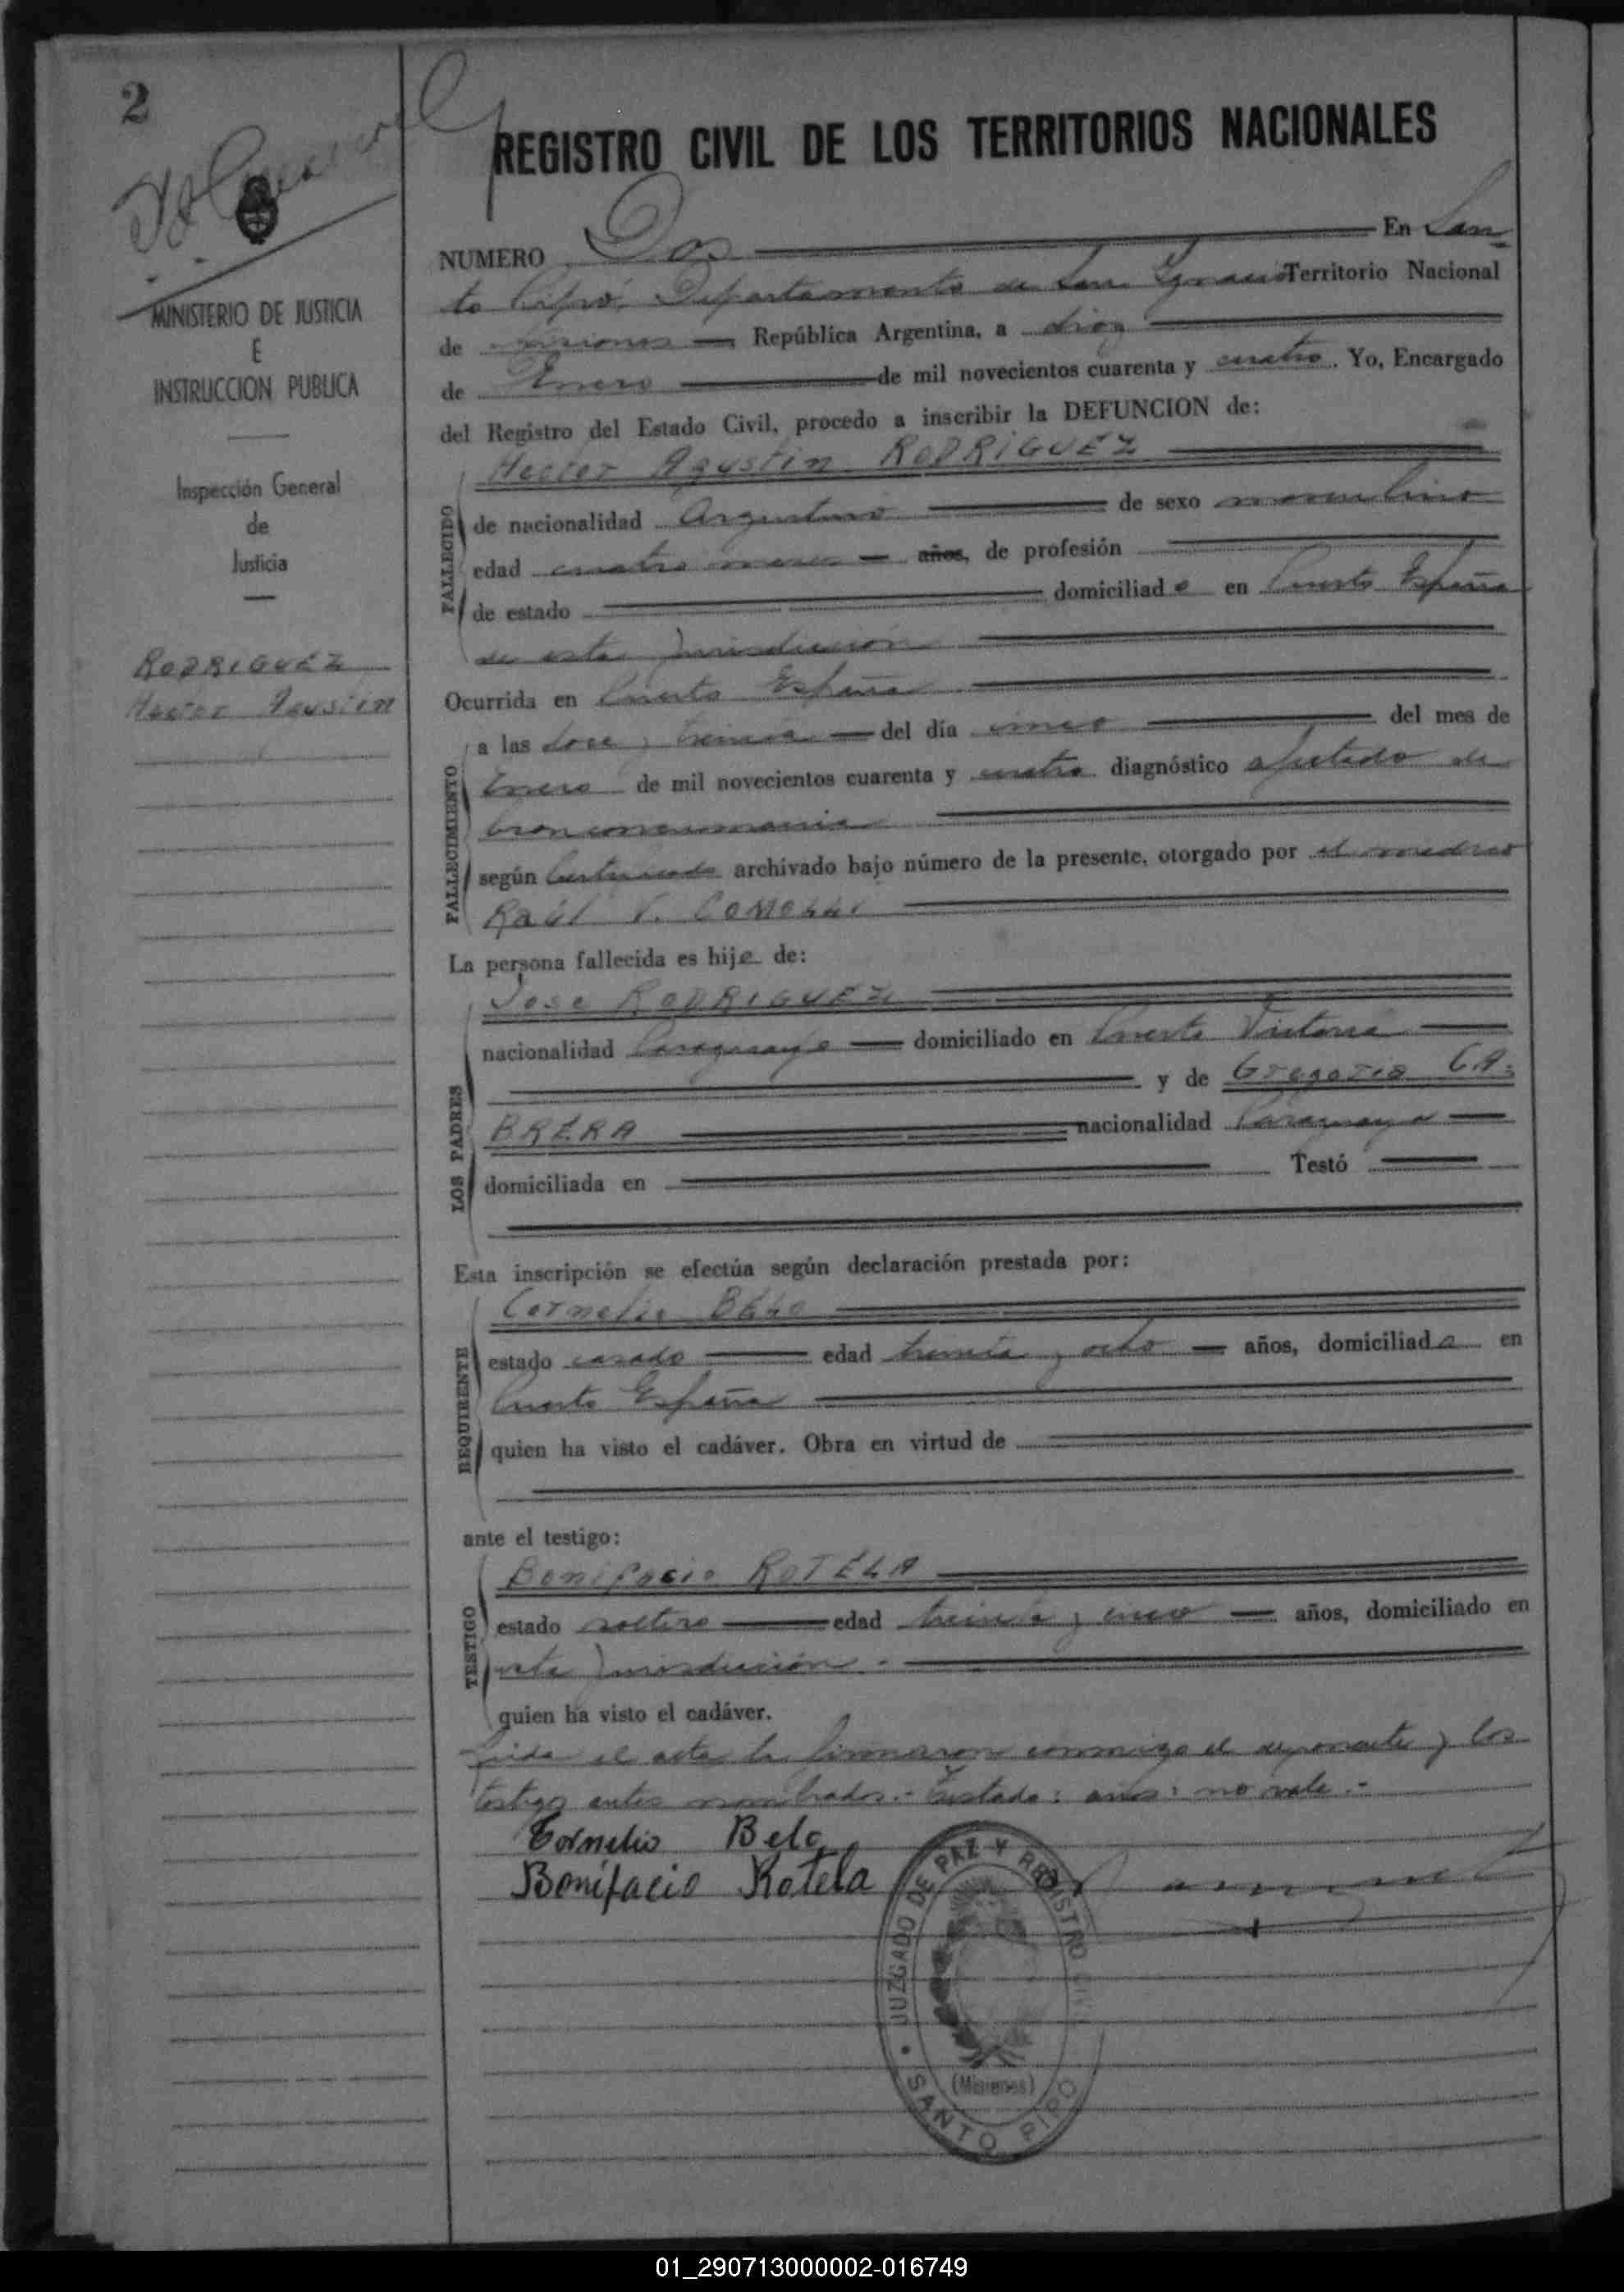 2
REGISTRO CIVIL DE LOS TERRITORIOS NACIONALES
MINISTERIO DE JUSTICIA
E
INSTRUCCION PUBLICA
Inspección General
de
Justicia
RODRIGUEZ
Hector Agustin
NUMERO Dos En San-
to Pipó, Departamento de San Ignacio Territorio Nacional
de Misiones República Argentina, a diez
de Enero de mil novecientos cuarenta y cuatro. Yo, Encargado
del Registro del Estado Civil, procedo a inscribir la DEFUNCION de:
Hector Agustin RODRIGUEZ
FALLECIDO
de nacionalidad Argentino de sexo masculino
edad cuatro meses años, de profesión
de estado domiciliado en Puerto España
de esta jurisdicción
Ocurrida en Puerto España
FALLECIMIENTO
a las doce y treinta del día cinco del mes de
Enero de mil novecientos cuarenta y cuatro diagnóstico afectado de
bronconeumonia
según Certificado archivado bajo número de la presente, otorgado por el medico
Raúl V. COMOLLI
La persona fallecida es hijo de:
LOS PADRES
Jose RODRIGUEZ
nacionalidad Paraguayo domiciliado en Puerto Victoria
y de Gregoria CA=
BRERA nacionalidad Paraguaya
domiciliada en Testó
Esta inscripción se efectúa según declaración prestada por:
REQUIRENTE
Cornelio BELO
estado casado edad treinta y ocho años, domiciliado en
Puerto España
quien ha visto el cadáver. Obra en virtud de
ante el testigo:
TESTIGO
Bonifacio ROTELA
estado soltero edad treinta y cinco años, domiciliado en
esta jurisdicción.-
quien ha visto el cadáver.
Leida el acta la firmaron conmigo el exponente y los
testigos antes nombrados.- Testado: años: no vale.-
Cornelio Belo
Bonifacio Rotela
JUZGADO DE PAZ Y REGISTRO CIVIL
(Misiones)
SANTO PIPO
01_290713000002-016749